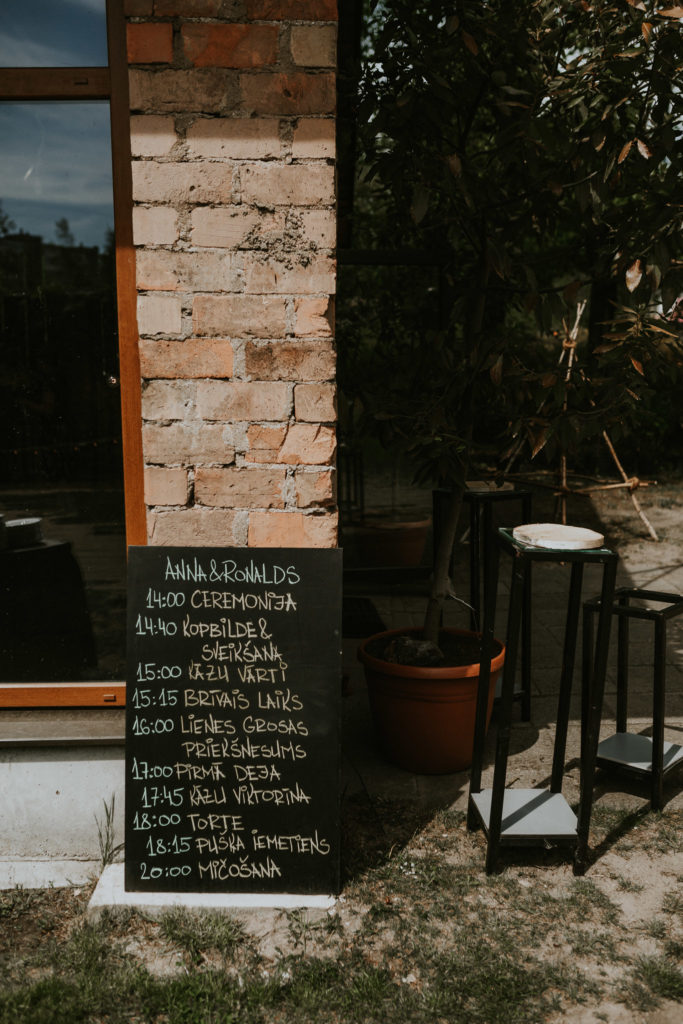 ANNA & RONALDS
14:00 CEREMONIJA
14:40 KOPBILDE &
SVEIKŠANA
15:00 KĀZU VĀRTI
15:15 BRĪVAIS LAIKS
16:00 LIENES GROSAS
PRIEKŠNESUMS
17:00 PIRMĀ DEJA
17:45 KĀZU VIKTORĪNA
18:00 TORTE
18:15 PUŠĶA IEMETIENS
20:00 MIČOŠANA